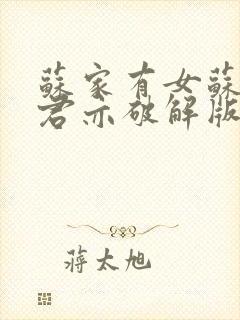 蘇家有女蘇
君亦破解版
蔣太旭